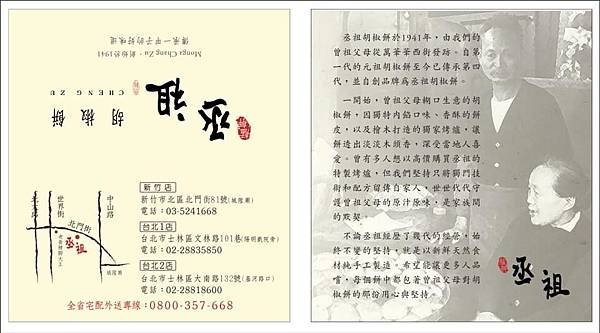 傳承一甲子的好味道
Monga Chang Zu．創始於1941
丞祖
胡椒餅
CHENG ZU
新竹店
新竹市北區北門街81號(城隍廟)
電話：03-5241668
台北1店
台北市士林區文林路101巷(陽明戲院旁)
電話：02-28835850
台北2店
台北市士林區大南路132號(基河路口)
電話：02-28818600
全省宅配外送專線：0800-357-668
世界街
中山路
北門街
丞祖
城隍廟
丞祖胡椒餅於1941年，由我們的
曾祖父母從萬華華西街發跡。自第一
代的元祖胡椒餅至今已傳承第四
代，並自創品牌為丞祖胡椒餅。
一開始，曾祖父母糊口生意的胡
椒餅，因獨特內餡口味、香酥的餅
皮，以及檜木打造的獨家烤爐，讓
餅造出淡淡木頭香，深受當地人喜
愛。曾有多人想以高價購買丞祖的
特製烤爐，但我們堅持只將獨門技
術和配方留傳自家人，世世代代守
護曾祖父母的原汁原味，是家族間
的默契。
不論丞祖經歷了幾代的經營，始
終不變的堅持，就是以新鮮天然食
材純手工製造。希望能讓更多人品
嚐，每個餅中都包著曾祖父母對胡
椒餅的那份用心與堅持。
丞祖